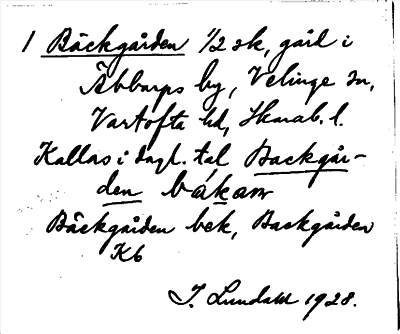 1 Bäckgården 1/2 sk, gård i
Äbbarps by, Velinge sn,
Vartofta hd, Skarab. l.
Kallas i dagl. tal Backgår-
den bákaṃ
Bäckgården bek, Backgården
K6
J. Lundahl 1928.